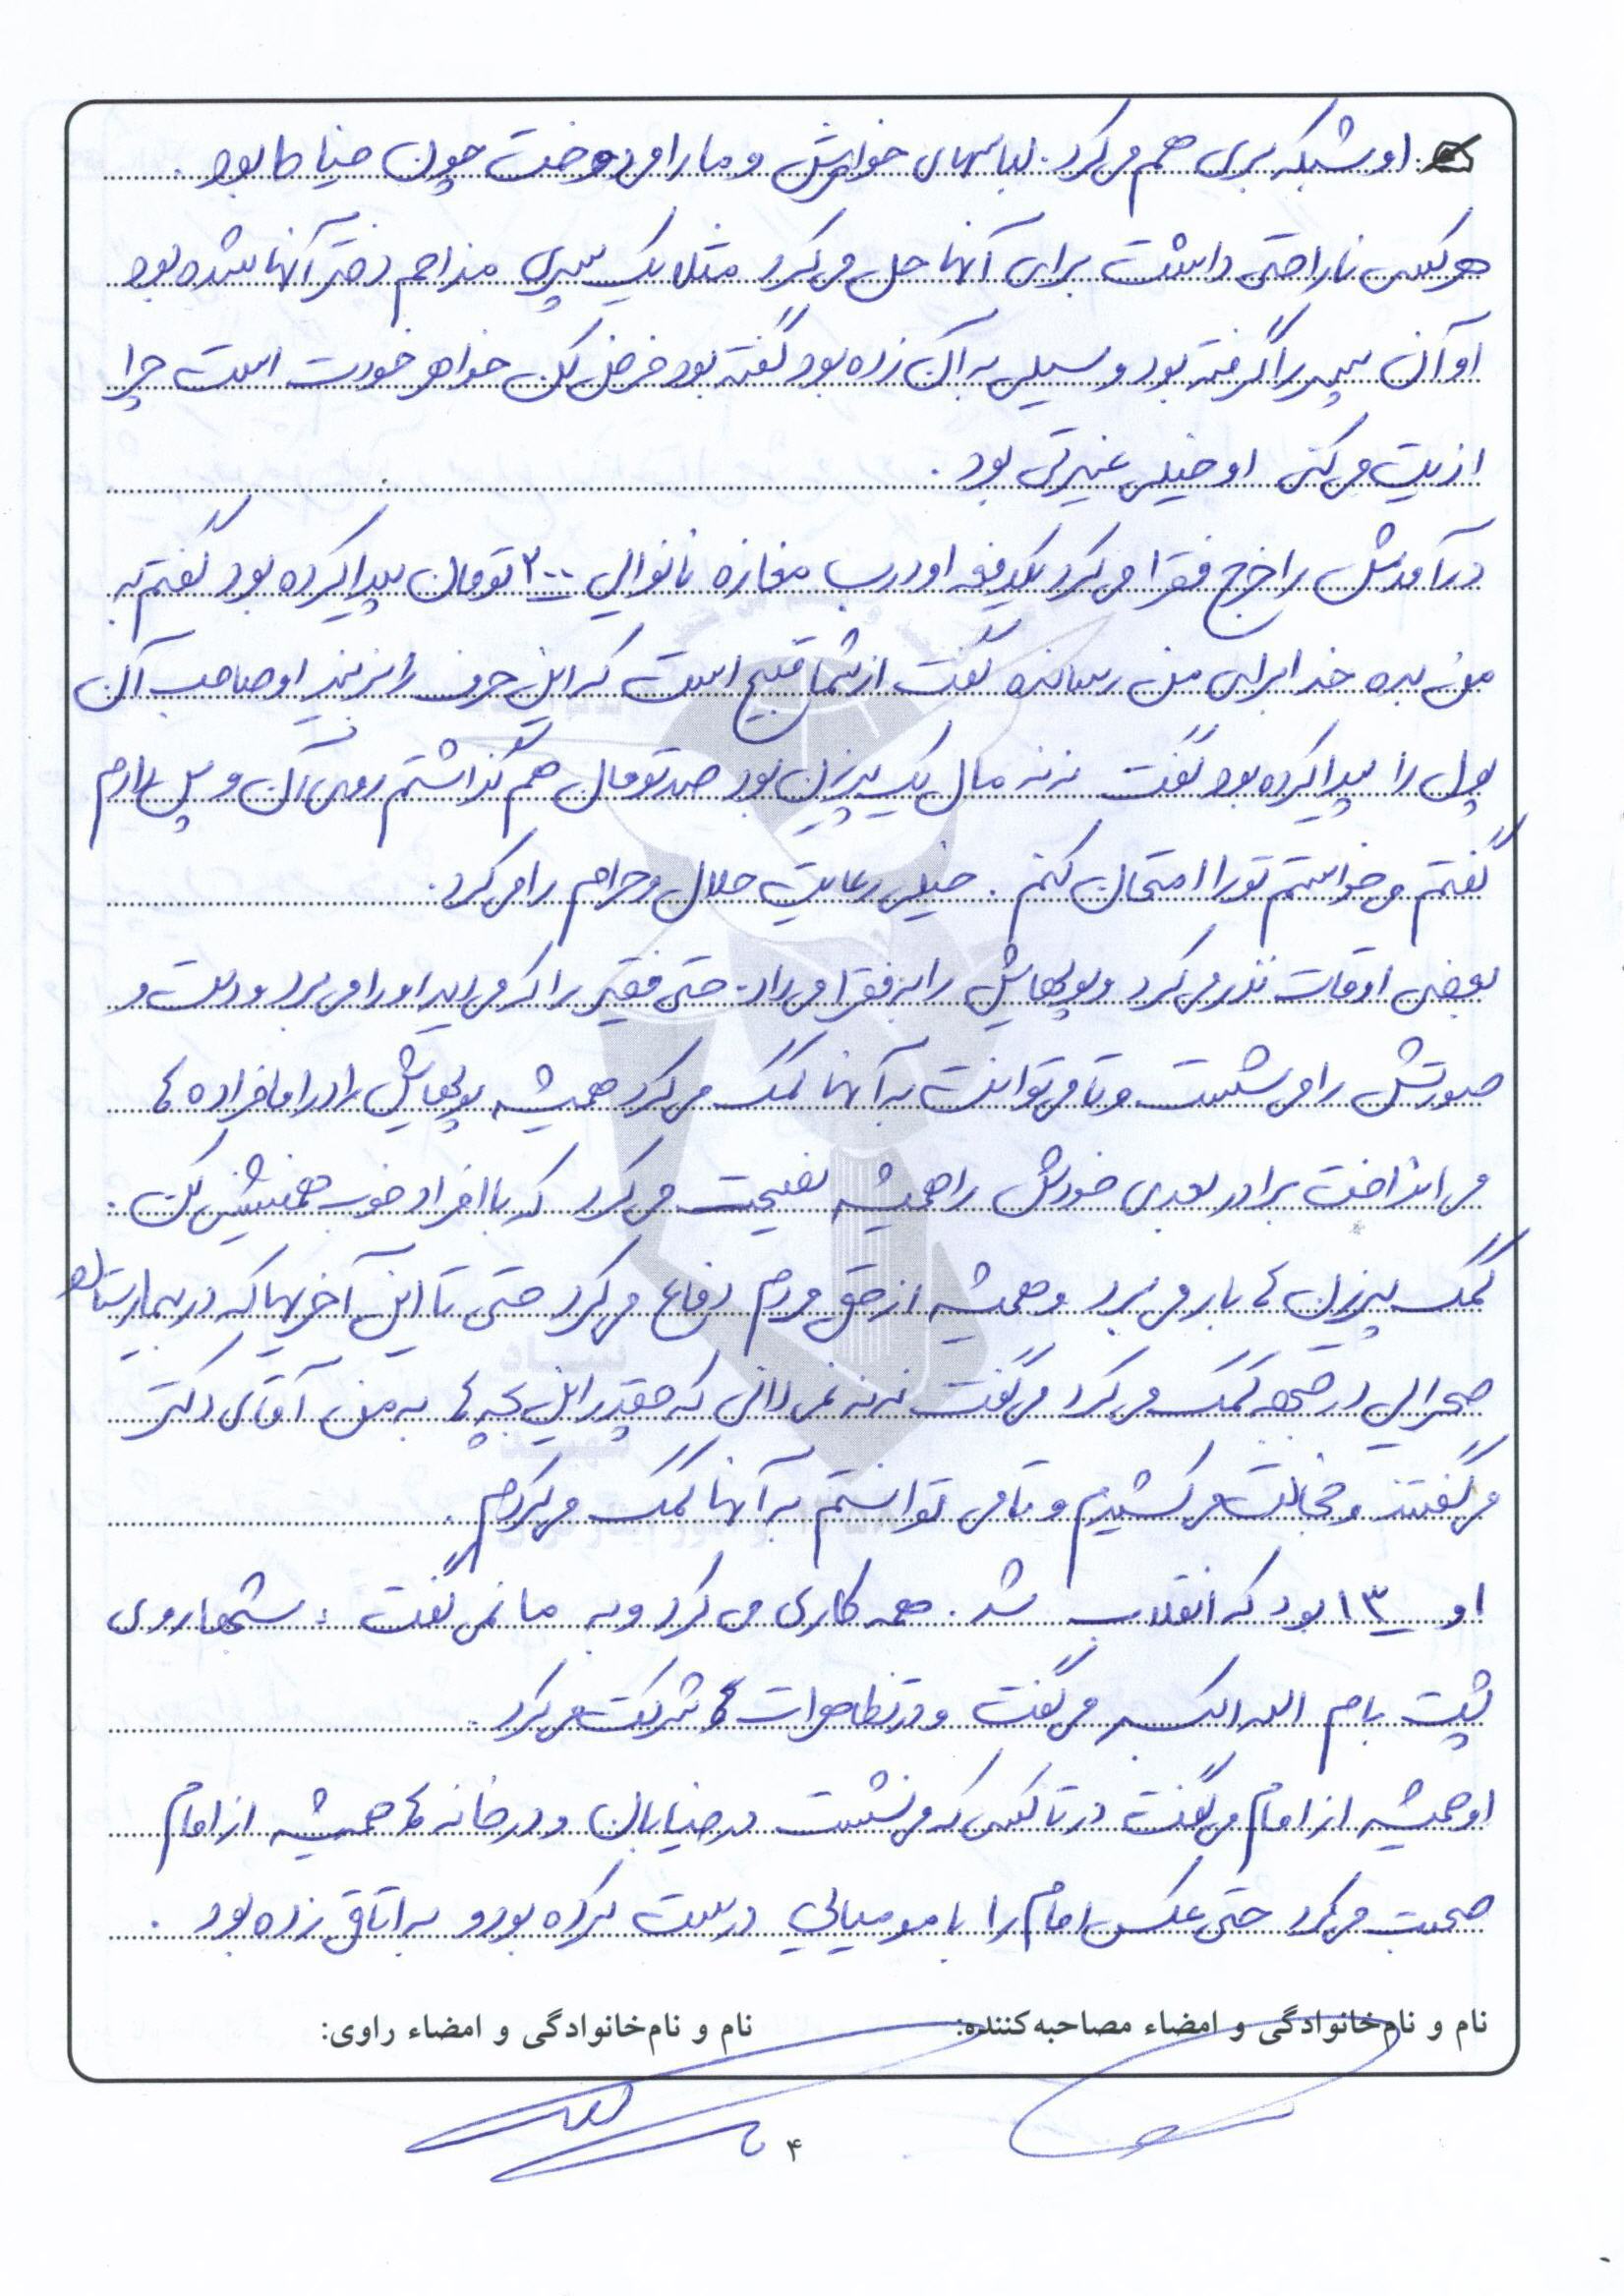 او شبکه بری هم می کرد. لباسهای خواهرش و ما را می دوخت چون خیاط بود.
هرکس ناراحتی داشت برای آنها حل می کرد مثلا یک پسری مزاحم دختر آنها شده بود
او آن پسر را گرفته بود و سیلی به آن زده بود گفته بود فرض کن خواهر خودت است چرا
اذیت می کنی او خیلی غیرتی بود.
درآمدش را خرج فقرا می کرد یکدفعه او درب مغازه نانوایی ۳۰۰ تومان پیدا کرده بود گفتم به
من بده خدا برای من رسانده گفت از شما قبیح است که این حرف را بزنید او صاحب آن
پول را پیدا کرده بود گفت ننه مال یک پیرزن بود صد تومان هم گذاشتم روی آن و پس دادم
گفتم می خواستم تو را امتحان کنم. خیلی رعایت حلال و حرام را می کرد.
بعضی اوقات نذر می کرد و پولهایش را به فقرا می داد. حتی فقیر را که می دید او را می برد و دست و
صورتش را می شست و تا می توانست به آنها کمک می کرد همیشه پولهایش را در امامزاده ها
می انداخت برادر بعدی خودش را همیشه نصیحت می کرد که با افراد خوب همنشینی کن.
کمک پیرزن ها بار می برد و همیشه از حق مردم دفاع می کرد حتی تا این آخریها که در بیمارستان
صحرایی در جبهه کمک می کرد می گفت ننه نمی دانی که چقدر این بچه ها به من آقای دکتر
می گفتند و خجالت می کشیدم و تا می توانستم به آنها کمک می کردم.
او ۱۳ بود که انقلاب شد. همه کاری می کرد و به ما نمی گفت: شبها روی
پشت بام الله اکبر می گفت و در تظاهرات ها شرکت می کرد.
او همیشه از امام می گفت در تاکسی که می نشست در خیابان و در خانه ها همیشه از امام
صحبت می کرد حتی عکس امام را با مومیایی درست کرده بود و به اتاق زده بود.
نام و نام‌خانوادگی و امضاء مصاحبه‌کننده: نام و نام‌خانوادگی و امضاء راوی:
۴